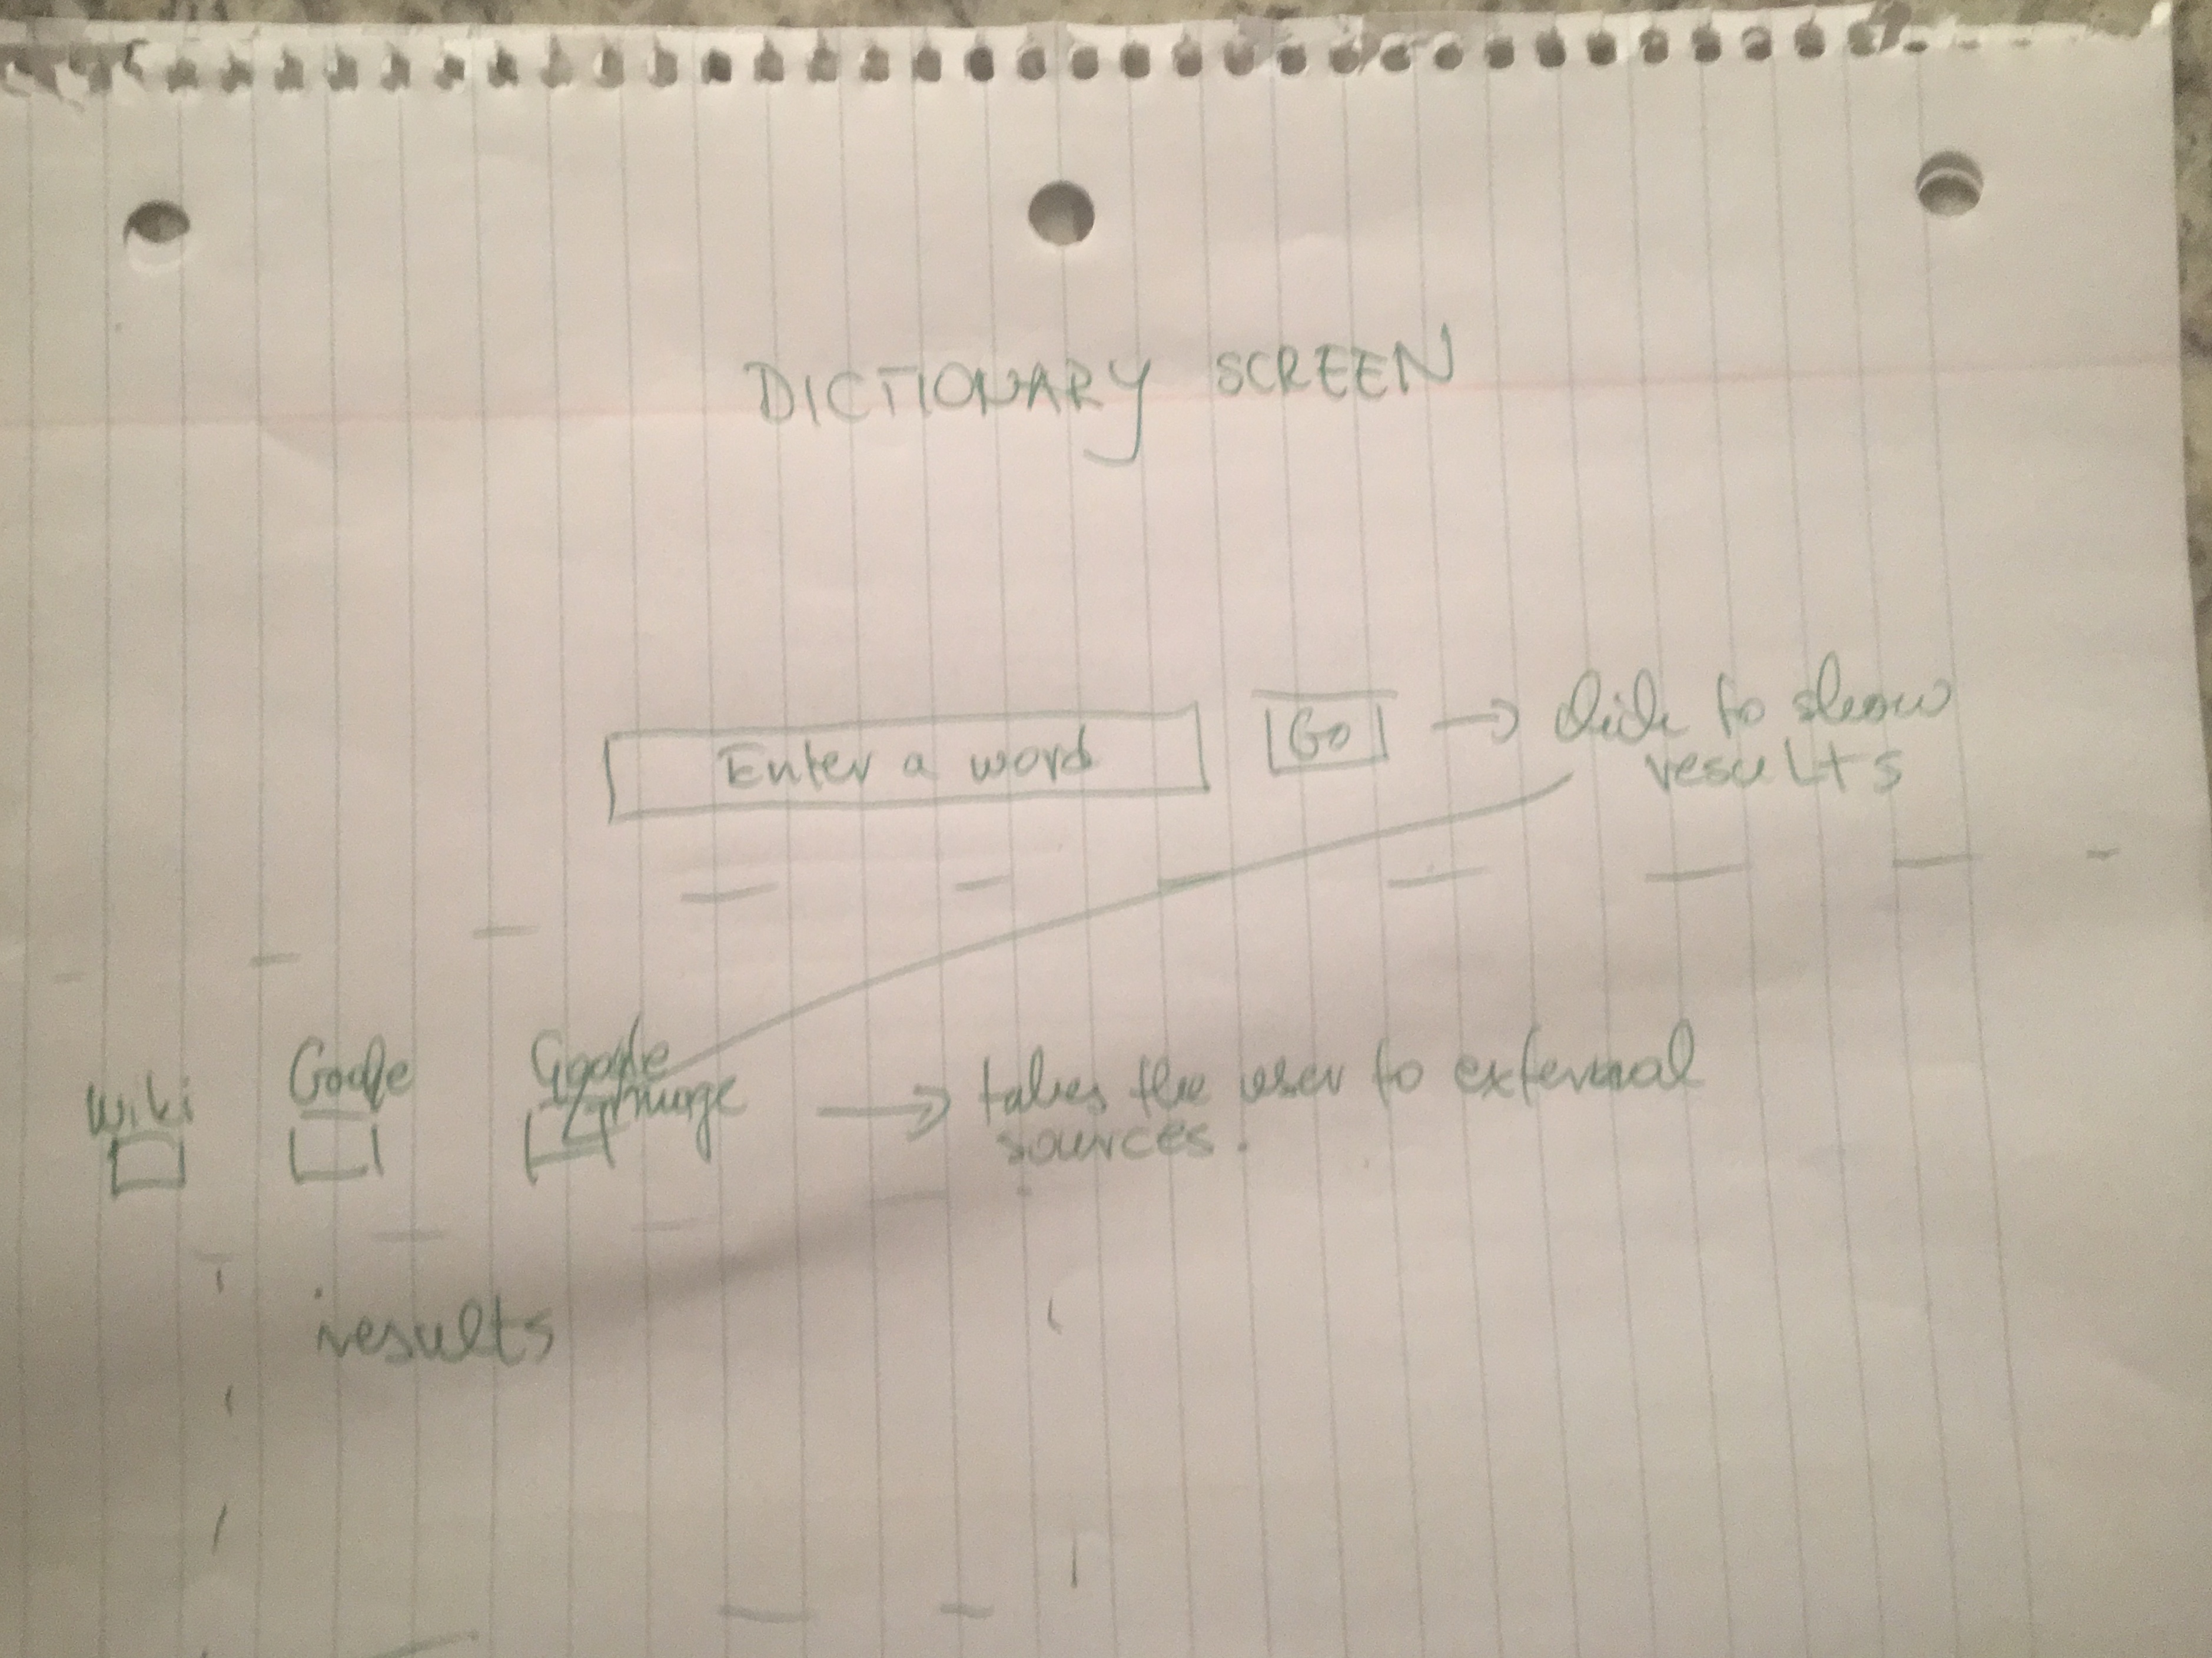 DICTIONARY SCREEN
Enter a word
Go
→ click to show
results
Wiki
Google
Google
Image
→ takes the user to external
sources.
results